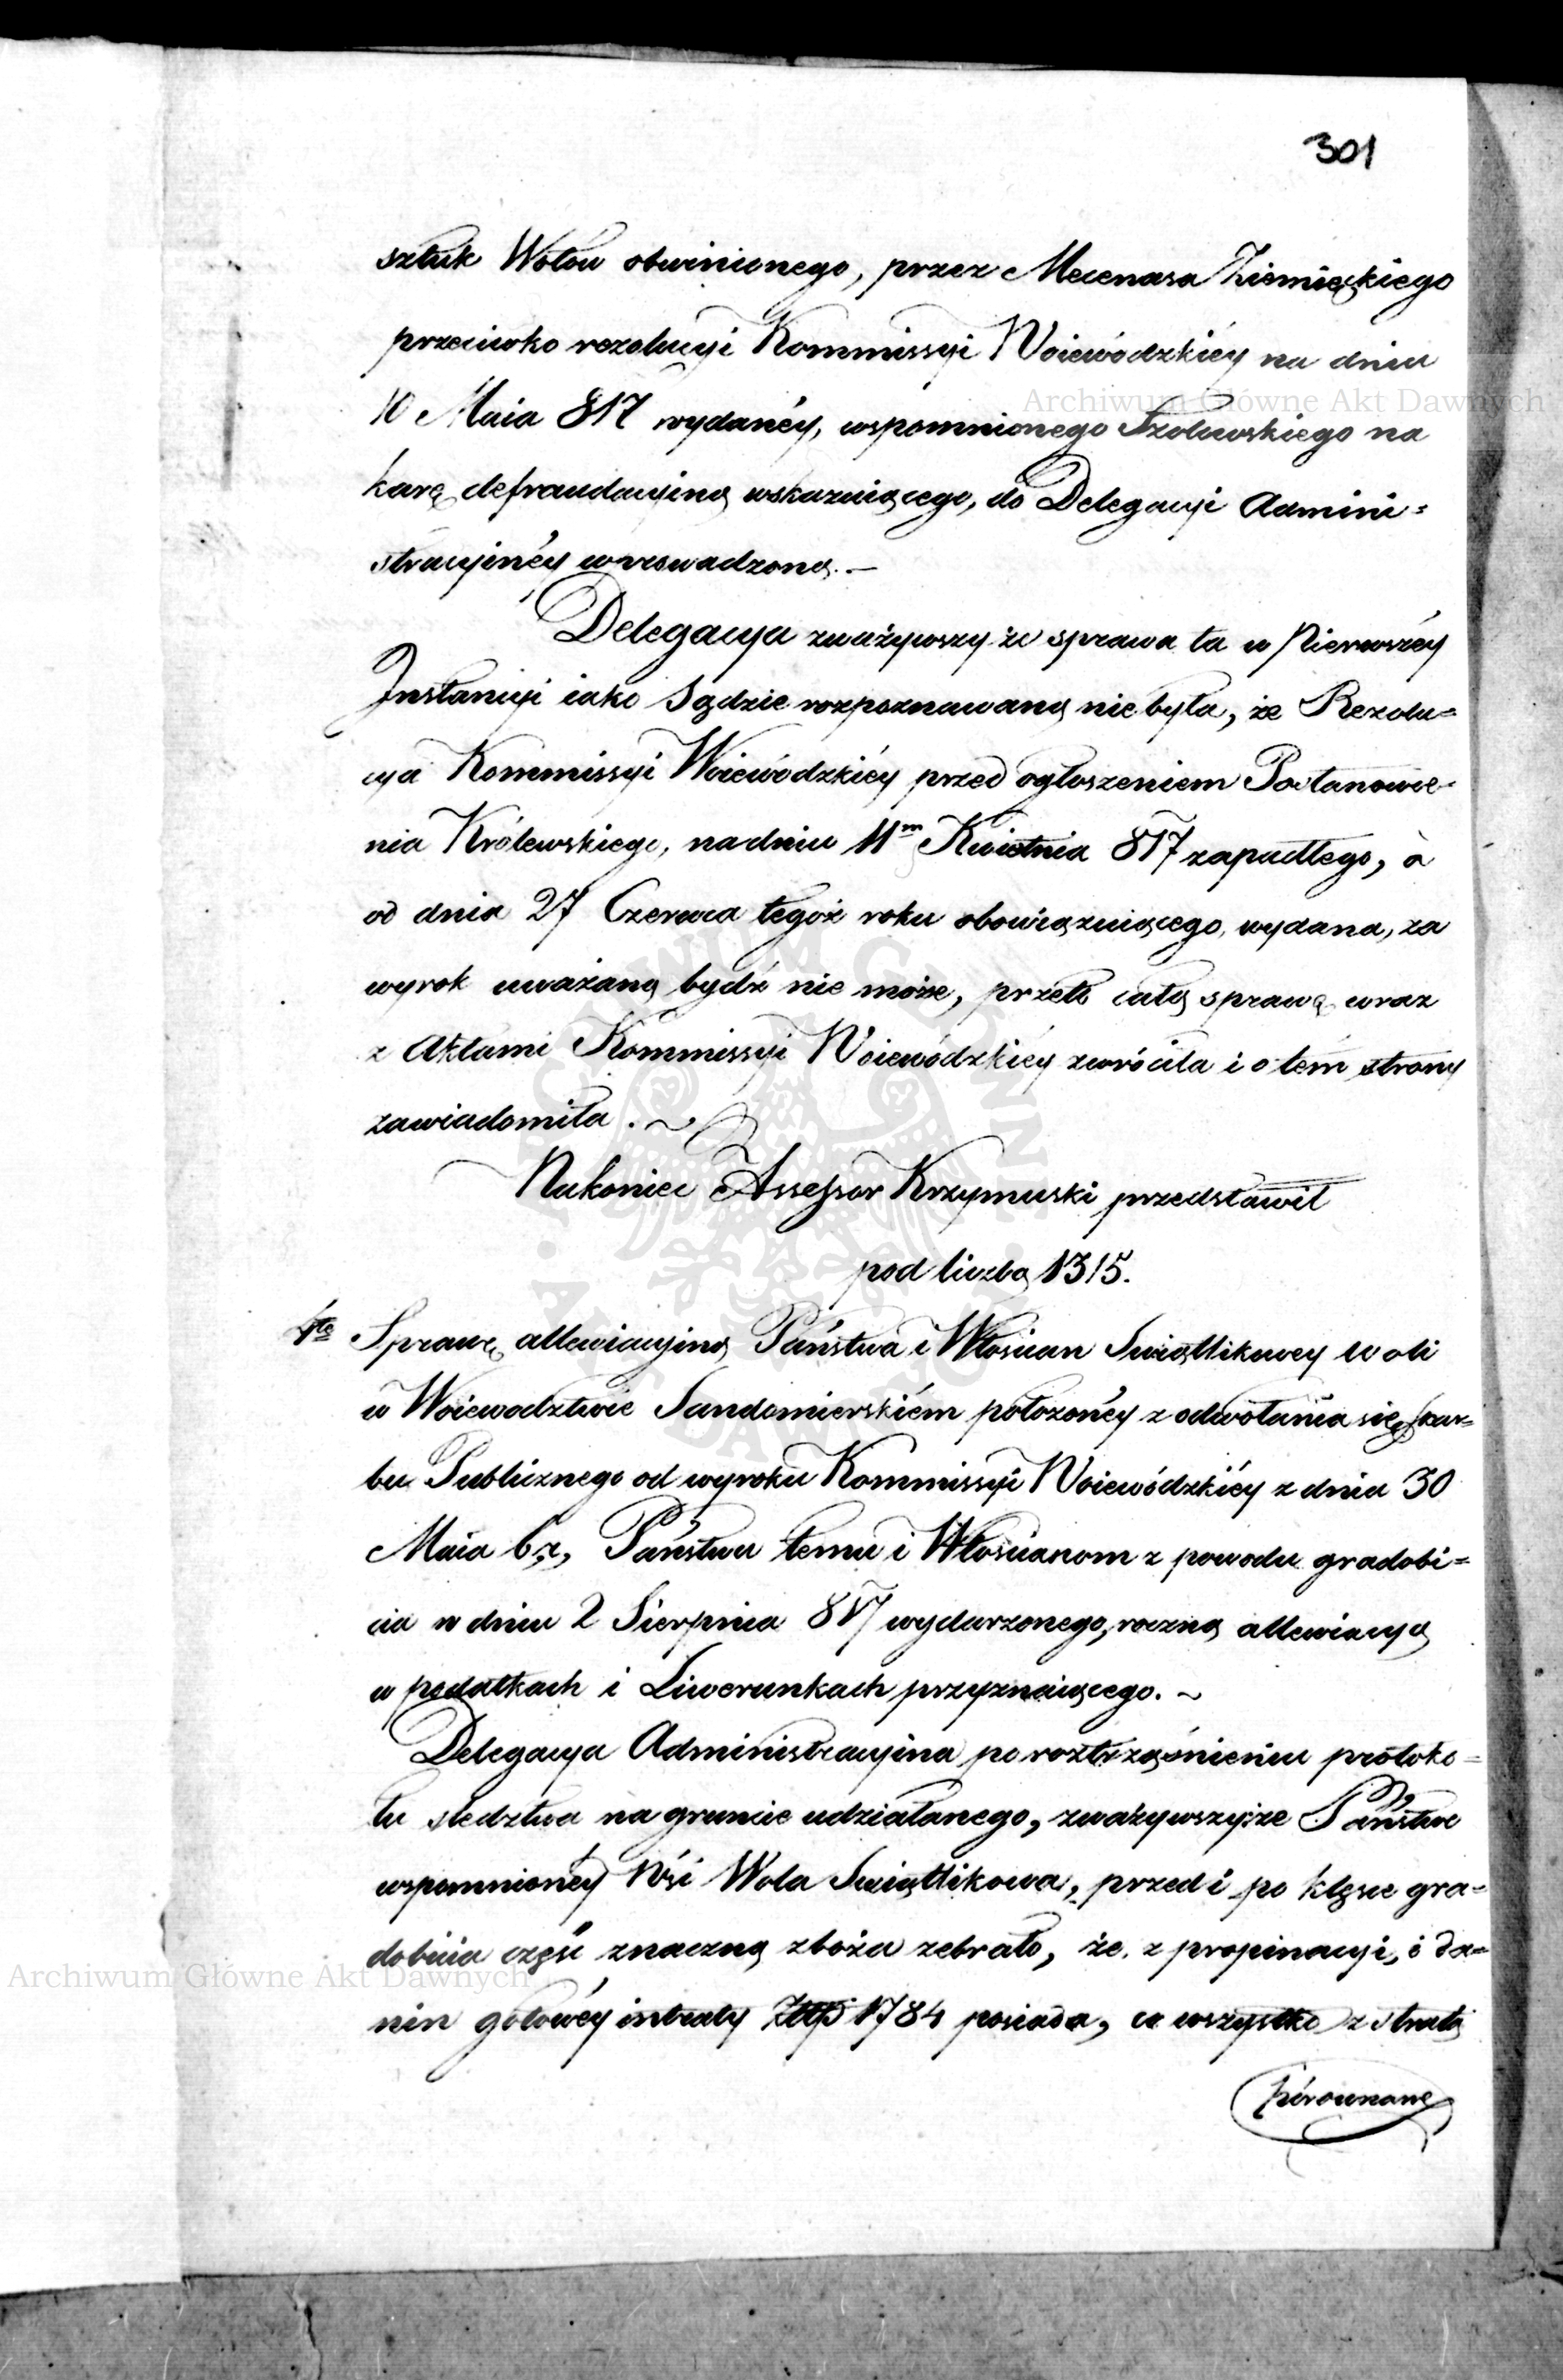 301
sztuk Wołow obwinionego, przez Mecenasa Ziemięckiego
przeciwko rezolucyi Kommissyi Woiewódzkiéy na dniu
10 Maia 817 wydanéy, wspomnionego Szołowskiego na
karę defraudacyiną wskazuiącego, do Delegacyi Admini=
stracyinéy wprowadzoną. —
Delegacya zważywszy że sprawa ta w Pierwszéy
Instancyi iako Sądzie rozpoznawaną nie była, że Rezolu=
cya Kommissyi Woiewódzkiéy przed ogłoszeniem Postanowie=
nia Królewskiego, na dniu 11m Kwietnia 817 zapadłego, à
od dnia 27 Czerwca tegoż roku obowiązuiącego, wydana, za
wyrok uważaną bydź nie może, przeto całą sprawę wraz
z Aktami Kommissyi Woiewódzkiéy zwróciła i o tem strony
zawiadomiła. ~
Nakoniec Assessor Krzymuski przedstawił
pod liczbą 1315.
1te Sprawę allewiacyiną Państwa i Włościan Swiątlikowey woli
w Woiewodztwie Sandomierskiém położonéy z odwołania się Skar=
bu Publicznego od wyroku Kommissyi Woiewódzkiéy z dnia 30
Maia b. r., Państwu temu i Włościanom z powodu gradobi=
cia w dniu 2 Sierpnia 817 wydarzonego, roczną allewiacyą
w podatkach i Liwerunkach przyznaiącego. ~
Delegacya Administracyina po roztrząśnieniu protoko=
łu sledztwa na gruncie udziałanego, zważywszy że Państwo
wspomnionéy Wsi Wola Swiątlikowa, przed i po klęsce gra=
dobicia część znaczną zboża zebrało, że z propinacyi, i da=
nin gotowéy intraty Złtp 1784 posiada, co wszystko z stratą
porównane
Archiwum Główne Akt Dawnych
Archiwum Główne Akt Dawnych